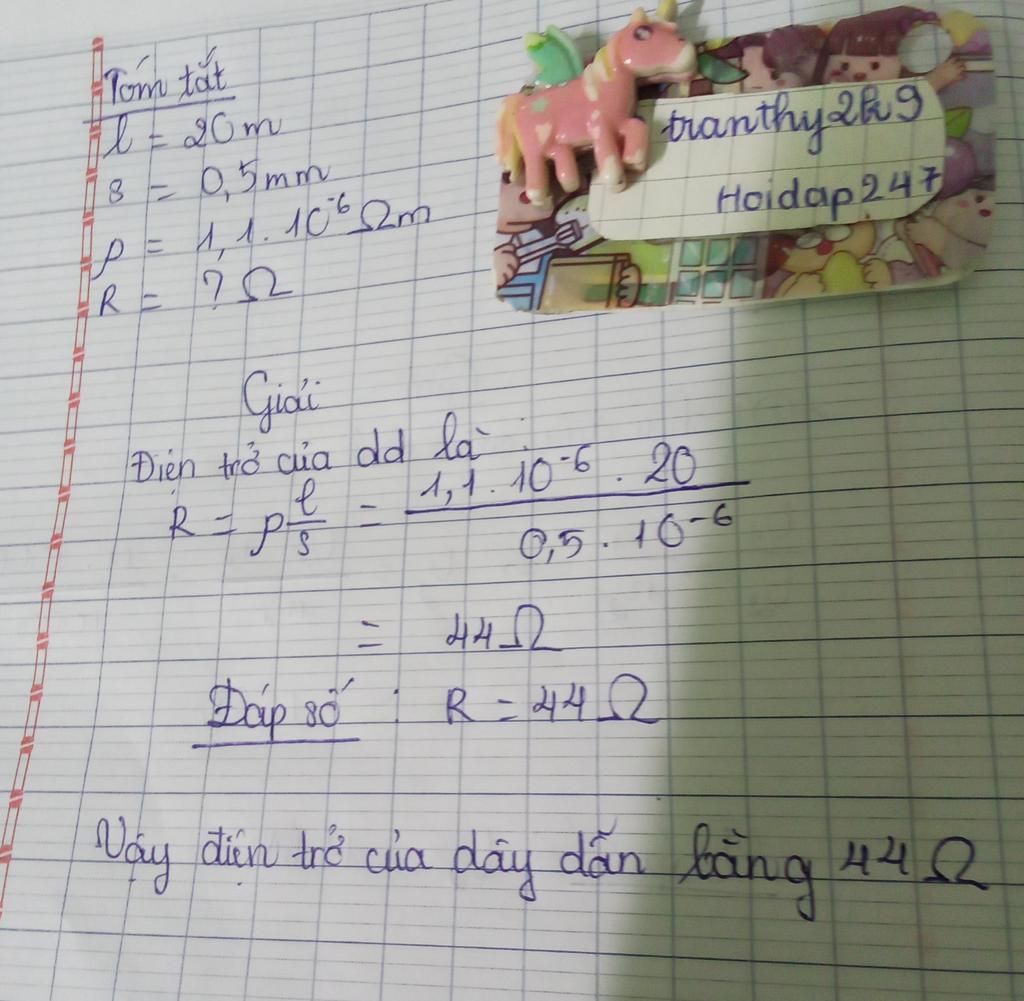 Tóm tắt
l = 20m
s = 0,5mm
ρ = 1,1.10⁻⁶ Ωm
R = ? Ω
tranthy2k9
Hoidap247
Giải
Điện trở của dd là :
R = ρ l/s = 1,1.10⁻⁶ . 20 / 0,5 . 10⁻⁶
= 44Ω
Đáp số : R = 44Ω
Vậy điện trở của dây dẫn bằng 44Ω